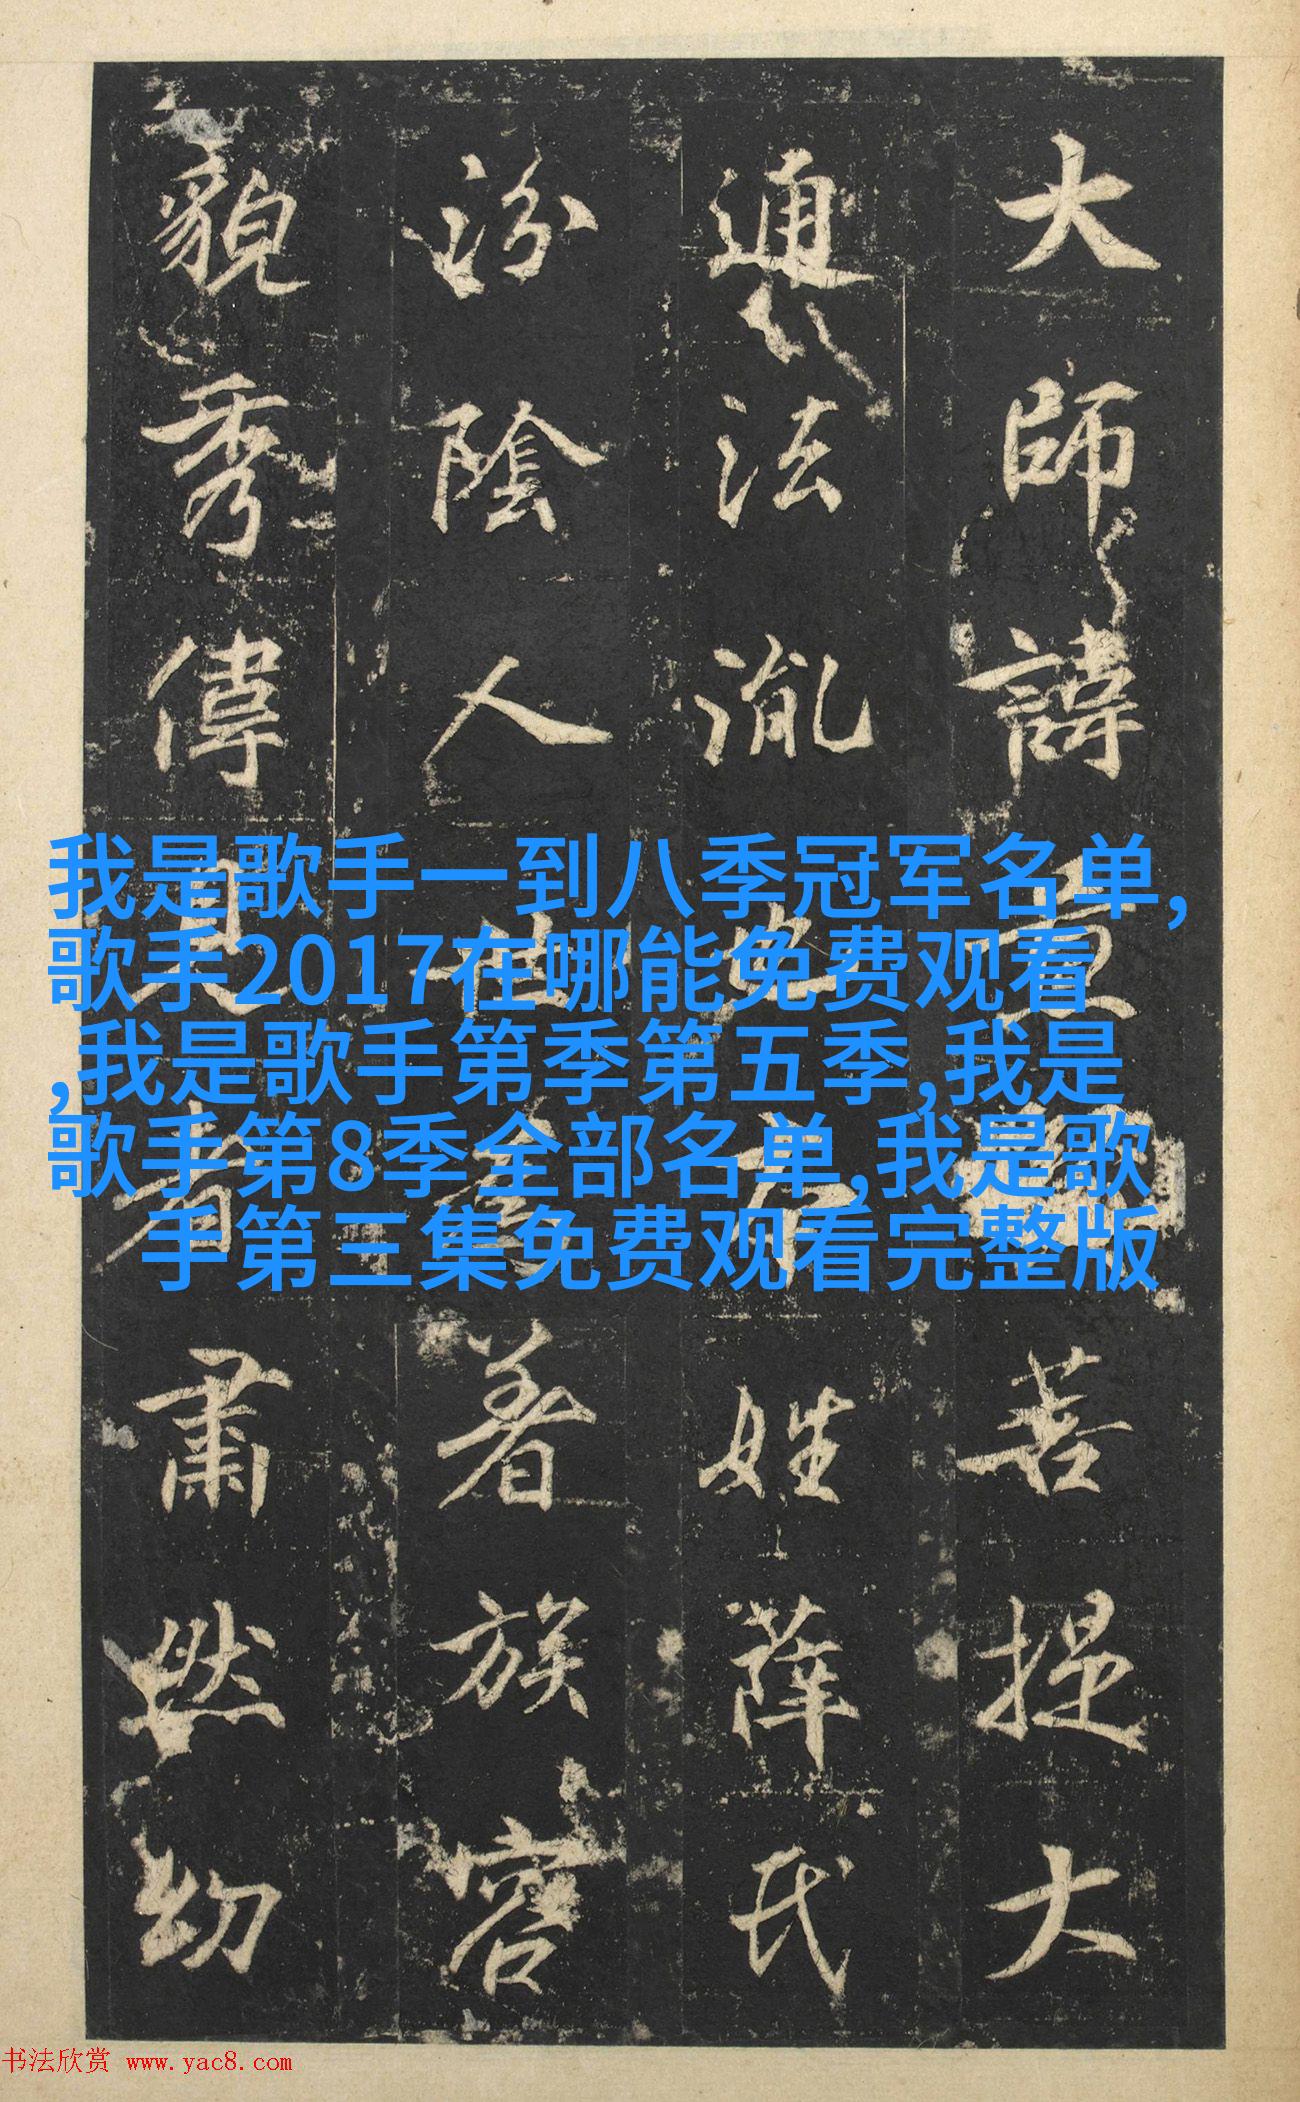 大師諱
菩提大
通法胤
姓薛氏
汾陰人
著族容
貌秀偉
者肅然幼
我是歌手一到八季冠军名单,
歌手2017在哪能免费观看
,我是歌手第季第五季,我是
歌手第8季全部名单,我是歌
手第三集免费观看完整版
书法欣赏 www.yac8.com